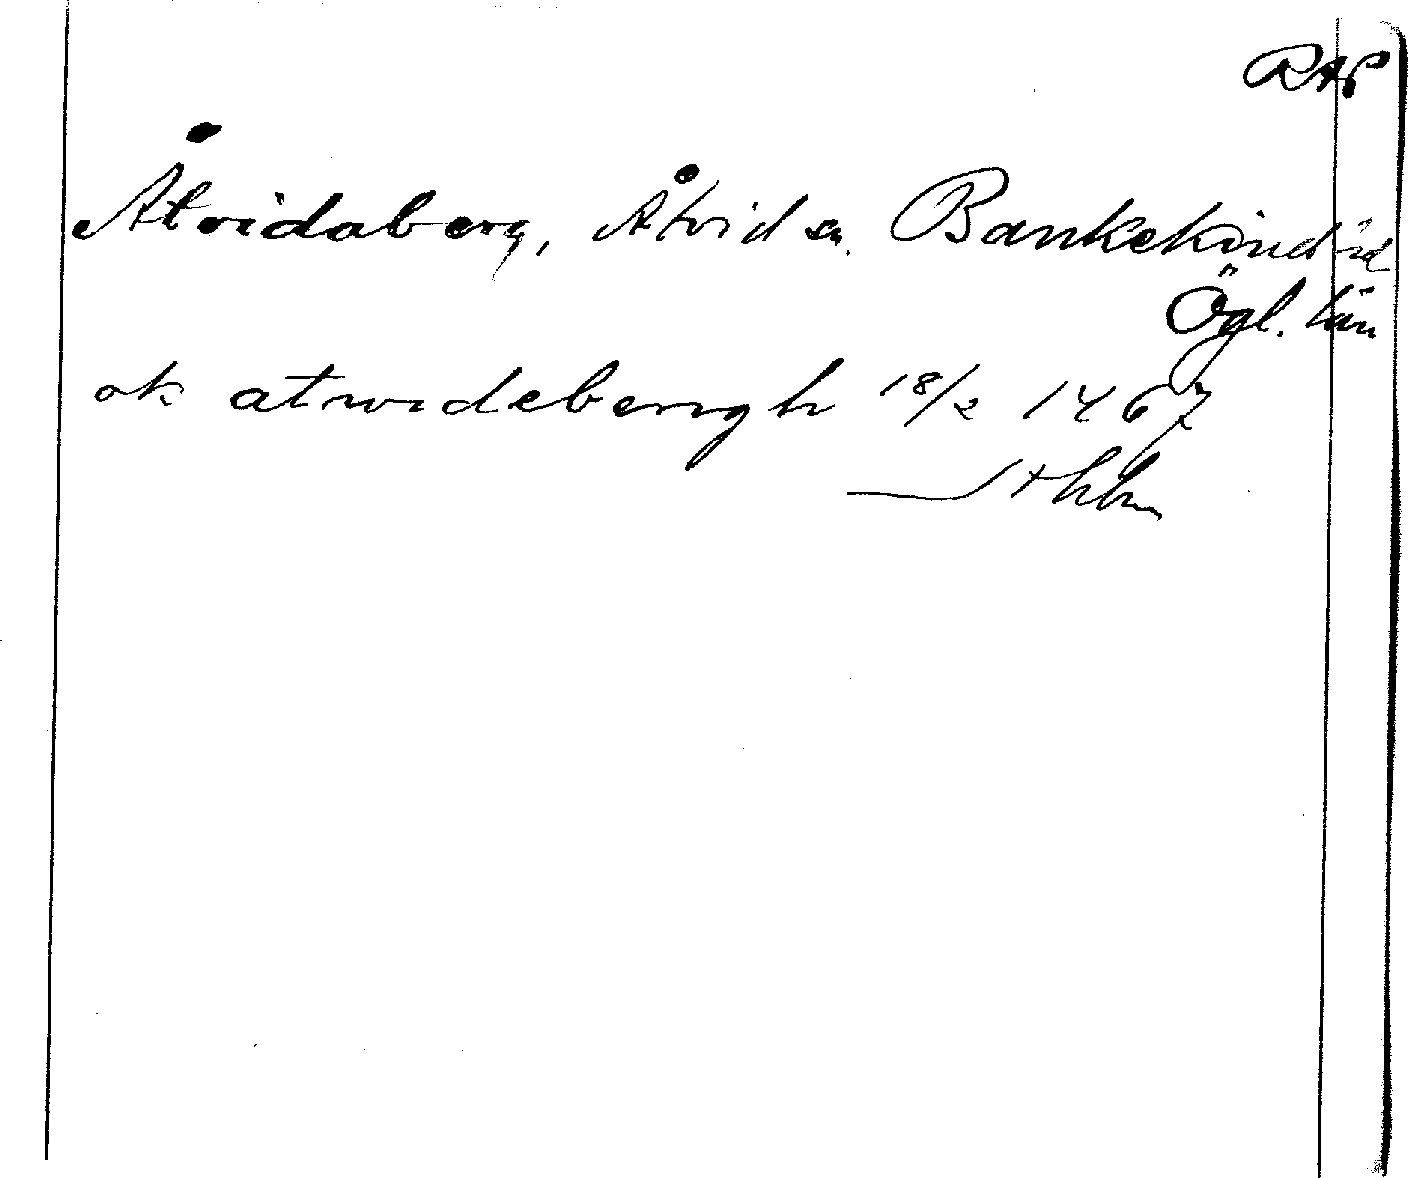 RAP
Åtvidaberg, Åtvid sn. Bankekind hd
Ögl. län
ok atwidebergh 18/2 1467
Sthlm